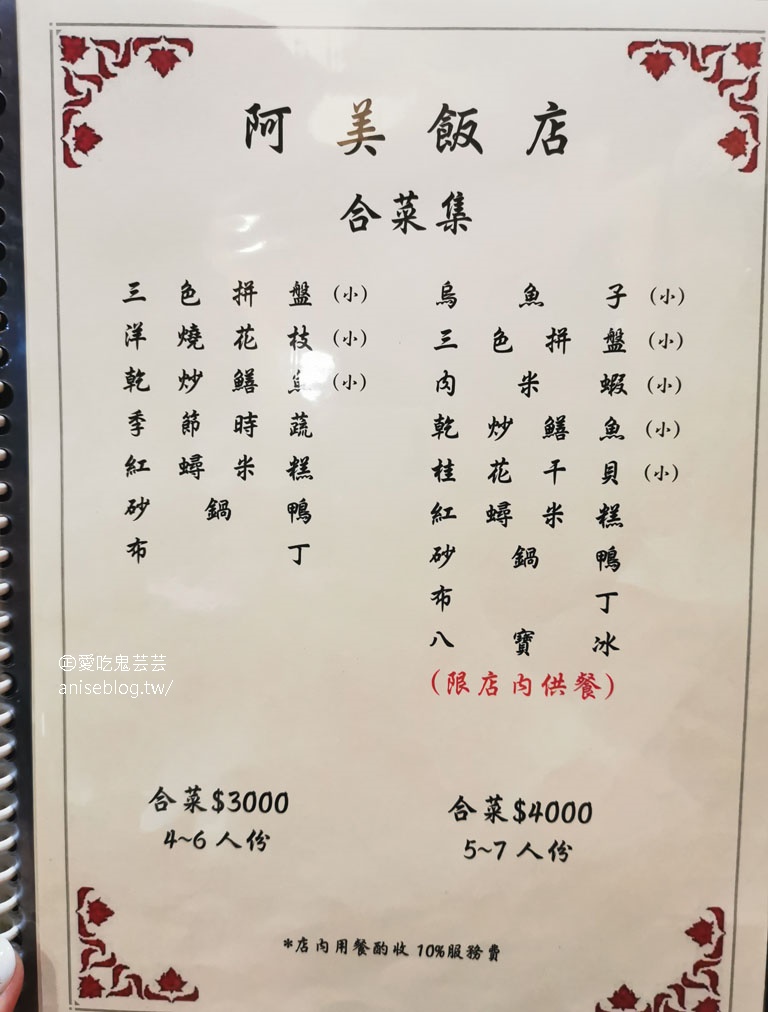 阿美飯店
合菜集
三色拼盤(小)
洋燒花枝(小)
乾炒鱔魚(小)
季節時蔬
紅蟳米糕
砂鍋鴨
布丁
合菜$3000
4~6人份
烏魚子(小)
三色拼盤(小)
肉米蝦(小)
乾炒鱔魚(小)
桂花干貝(小)
紅蟳米糕
砂鍋鴨
布丁
八寶冰
(限店內供餐)
合菜$4000
5~7人份
*店內用餐酌收10%服務費
愛吃鬼芸芸
aniseblog.tw/